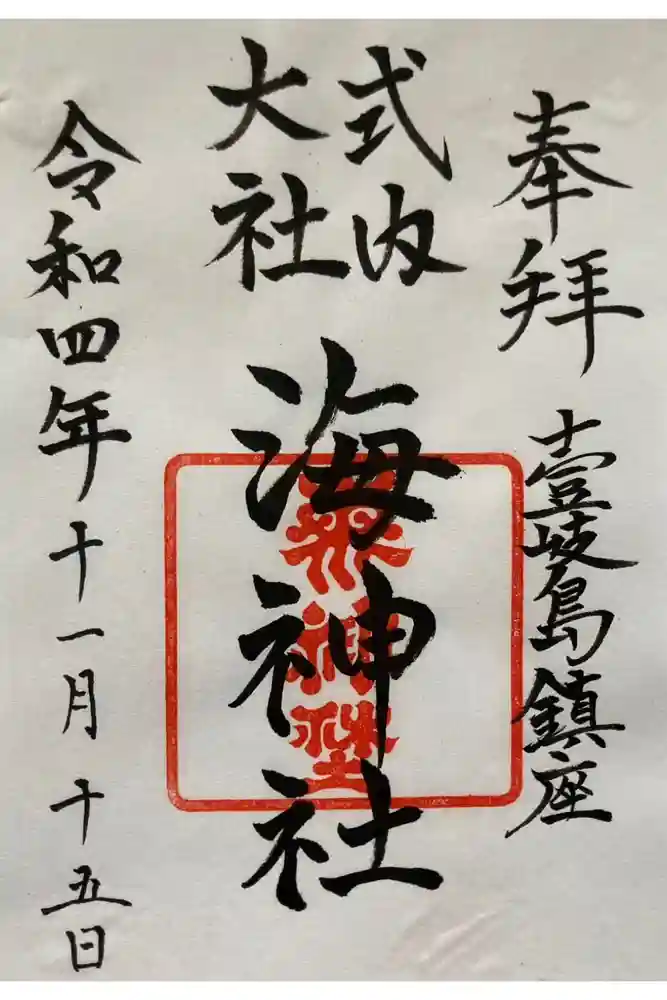 奉拝
壹岐島鎮座
式内
大社
海神社
令和四年十一月十五日